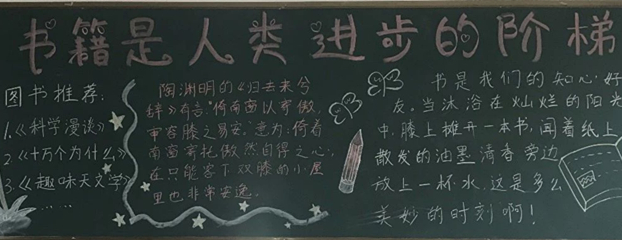 书籍是人类进步的阶梯
图书推荐:
1.《科学漫谈》
2.《十万个为什么》
3.《趣味天文学》
陶渊明的《归去来兮
辞》有言“倚南窗以寄傲,
审容膝之易安。”意为:倚着
南窗寄托傲然自得之心,
在只能容下双膝的小屋
里也非常安逸。
书是我们的知心好
友。当沐浴在灿烂的阳光
中,膝上摊开一本书,闻着纸上
散发的油墨清香旁边
放上一杯水,这是多么
美妙的时刻啊!